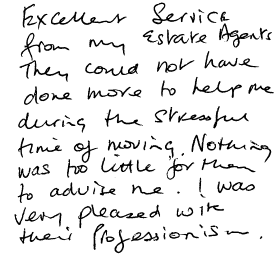 Excellent Service
from my Estate Agents
They could not have
done more to help me
during the stressful
time of moving. Nothing
was too little for them
to advise me. I was
very pleased with
their Professionism.